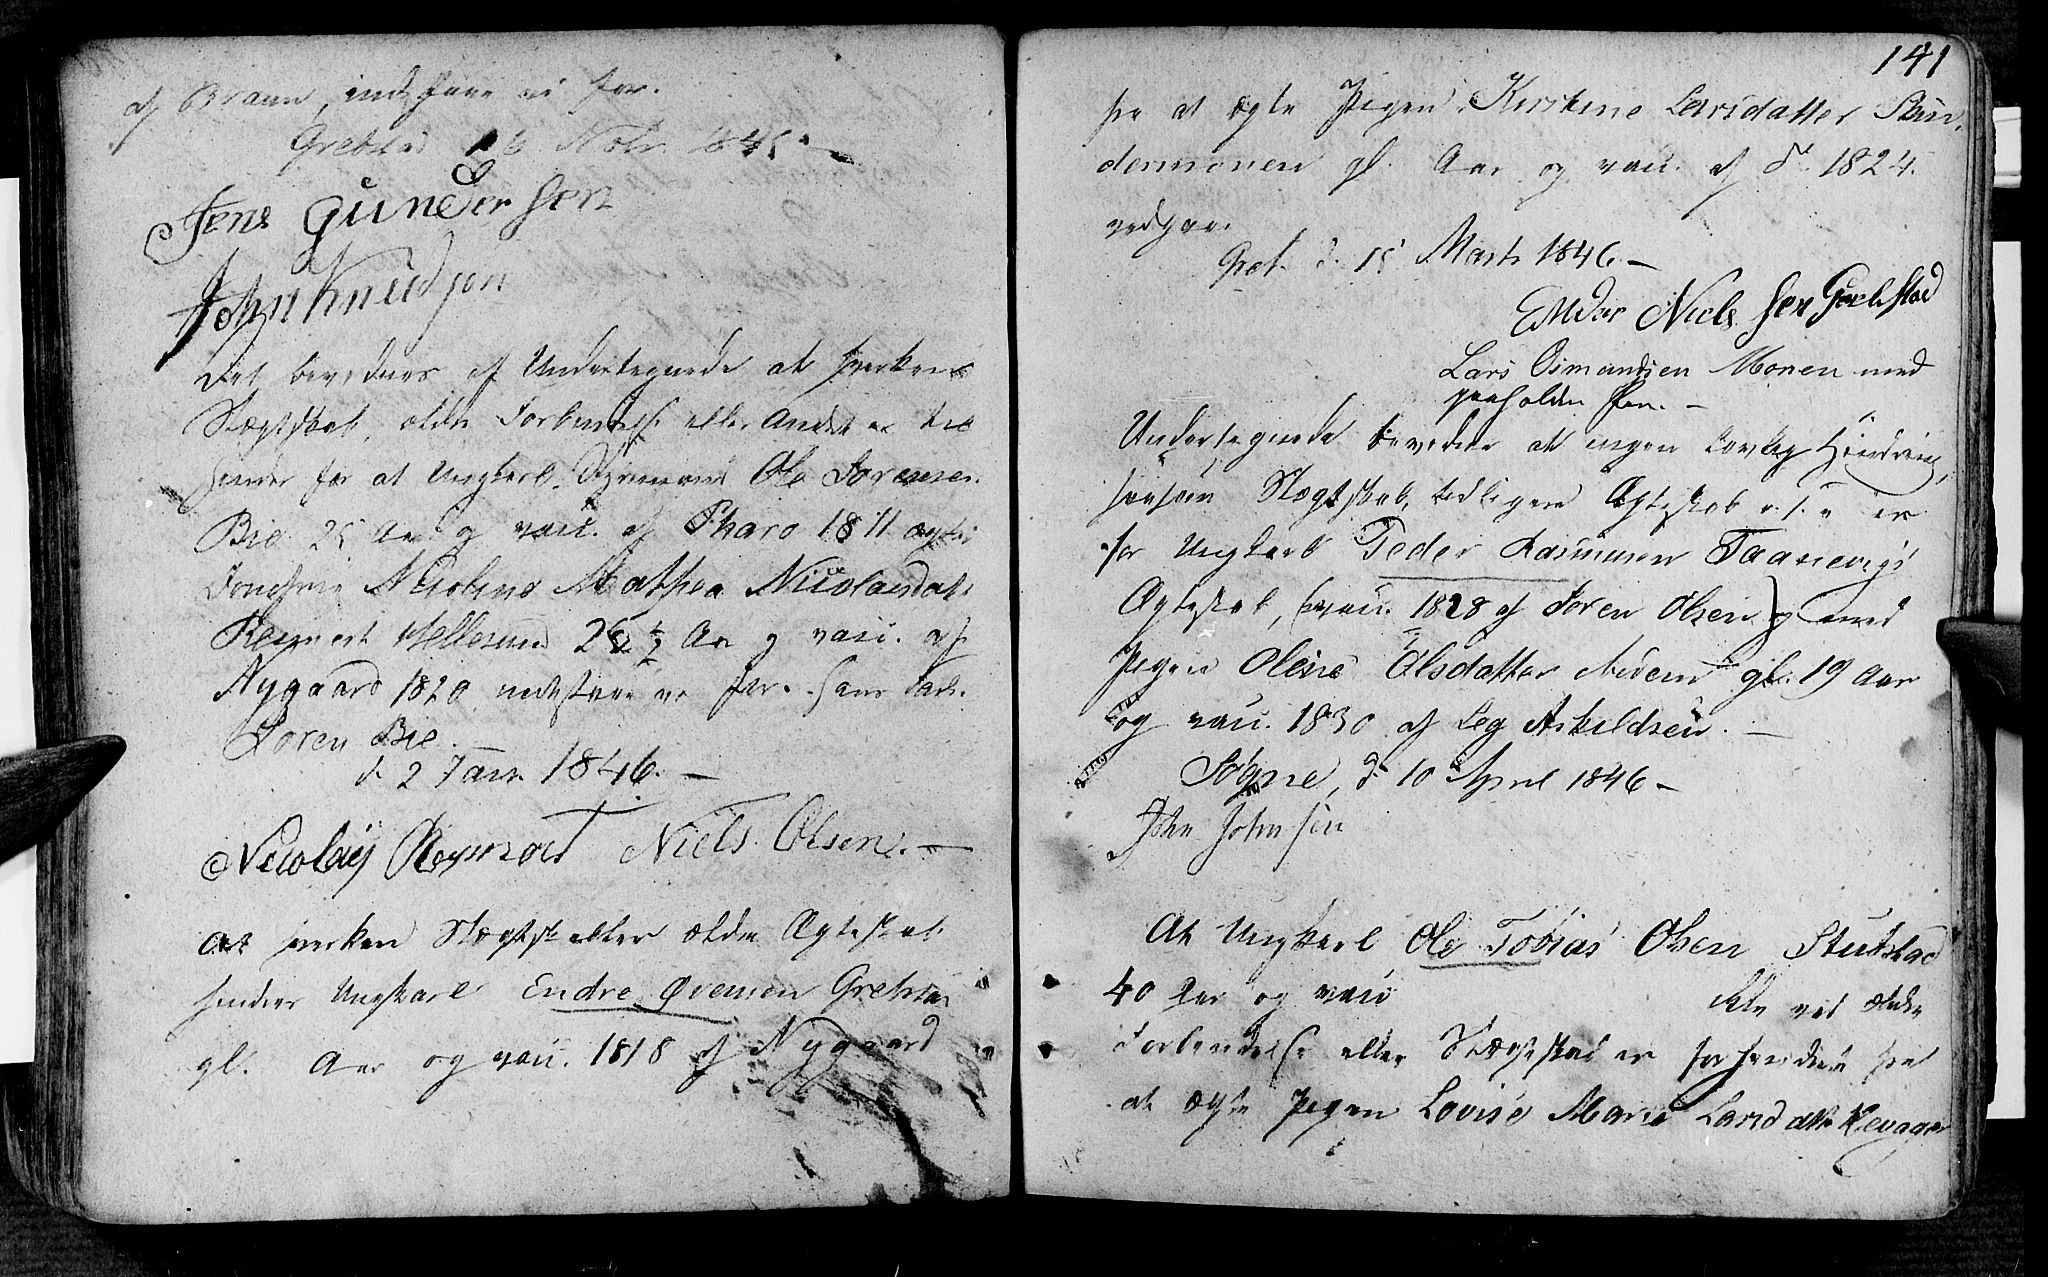 af Braun, indestaae vi for.
Grebstad 16 Novbr. 1845.
Jens Gundersen
John Knudsen
Det bevidnes af Undertegnede at hverken
Slægtskab, ældre Forbindelse eller Andet er til
Hinder for at Ungkarl Ole Sørensen
Bie 25 Aar og vacc. af Tharo 1811 ægter
Jomfrue Nicoline Mathea Nicolaisdatt.
Reymert Hellesund 26 ½ Aar og vacc. af
Nygaard 1820 indestaae vi for. Hans Fader
Søren Bie.
d. 2 Janr. 1846. —
Nicolay Reymert Niels Olsen. —
At hverken Slægtsk. eller ældre Ægteskab
hindrer Ungkarl Endre Øvensen Grebstad
gl. Aar og vacc. 1818 af Nygaard
141
fra at ægte Pigen Kirstine Larsdatter
gl. Aar og vacc. af d. 1824.
vedgaaes
Gret. d. 15 Marts 1846. —
Endar Nielssen Grebstad
Lars Osmundsen Monen med
paaholden Pen. —
Undertegnede bevidner at ingen lovlig Hindring,
saasom Slægtskab, tidligere Ægteskab o.s.v. er
for Ungkarl Peder Rasmussen Taanevigs
Ægteskab, (vacc. 1828 af Søren Olsen) med
Pigen Oline Olsdatter gl. 19 Aar
og vacc. 1830 af Leg Askildsen. —
Søgne, d. 10 April 1846 —
John Johnsen
At Ungkarl Ole Tobias Olsen Stubstad
40 Aar og vacc ved ældre
Forbindelse eller Slægtskab er forhindret fra
at ægte Pigen Lovise Marie Larsdatter